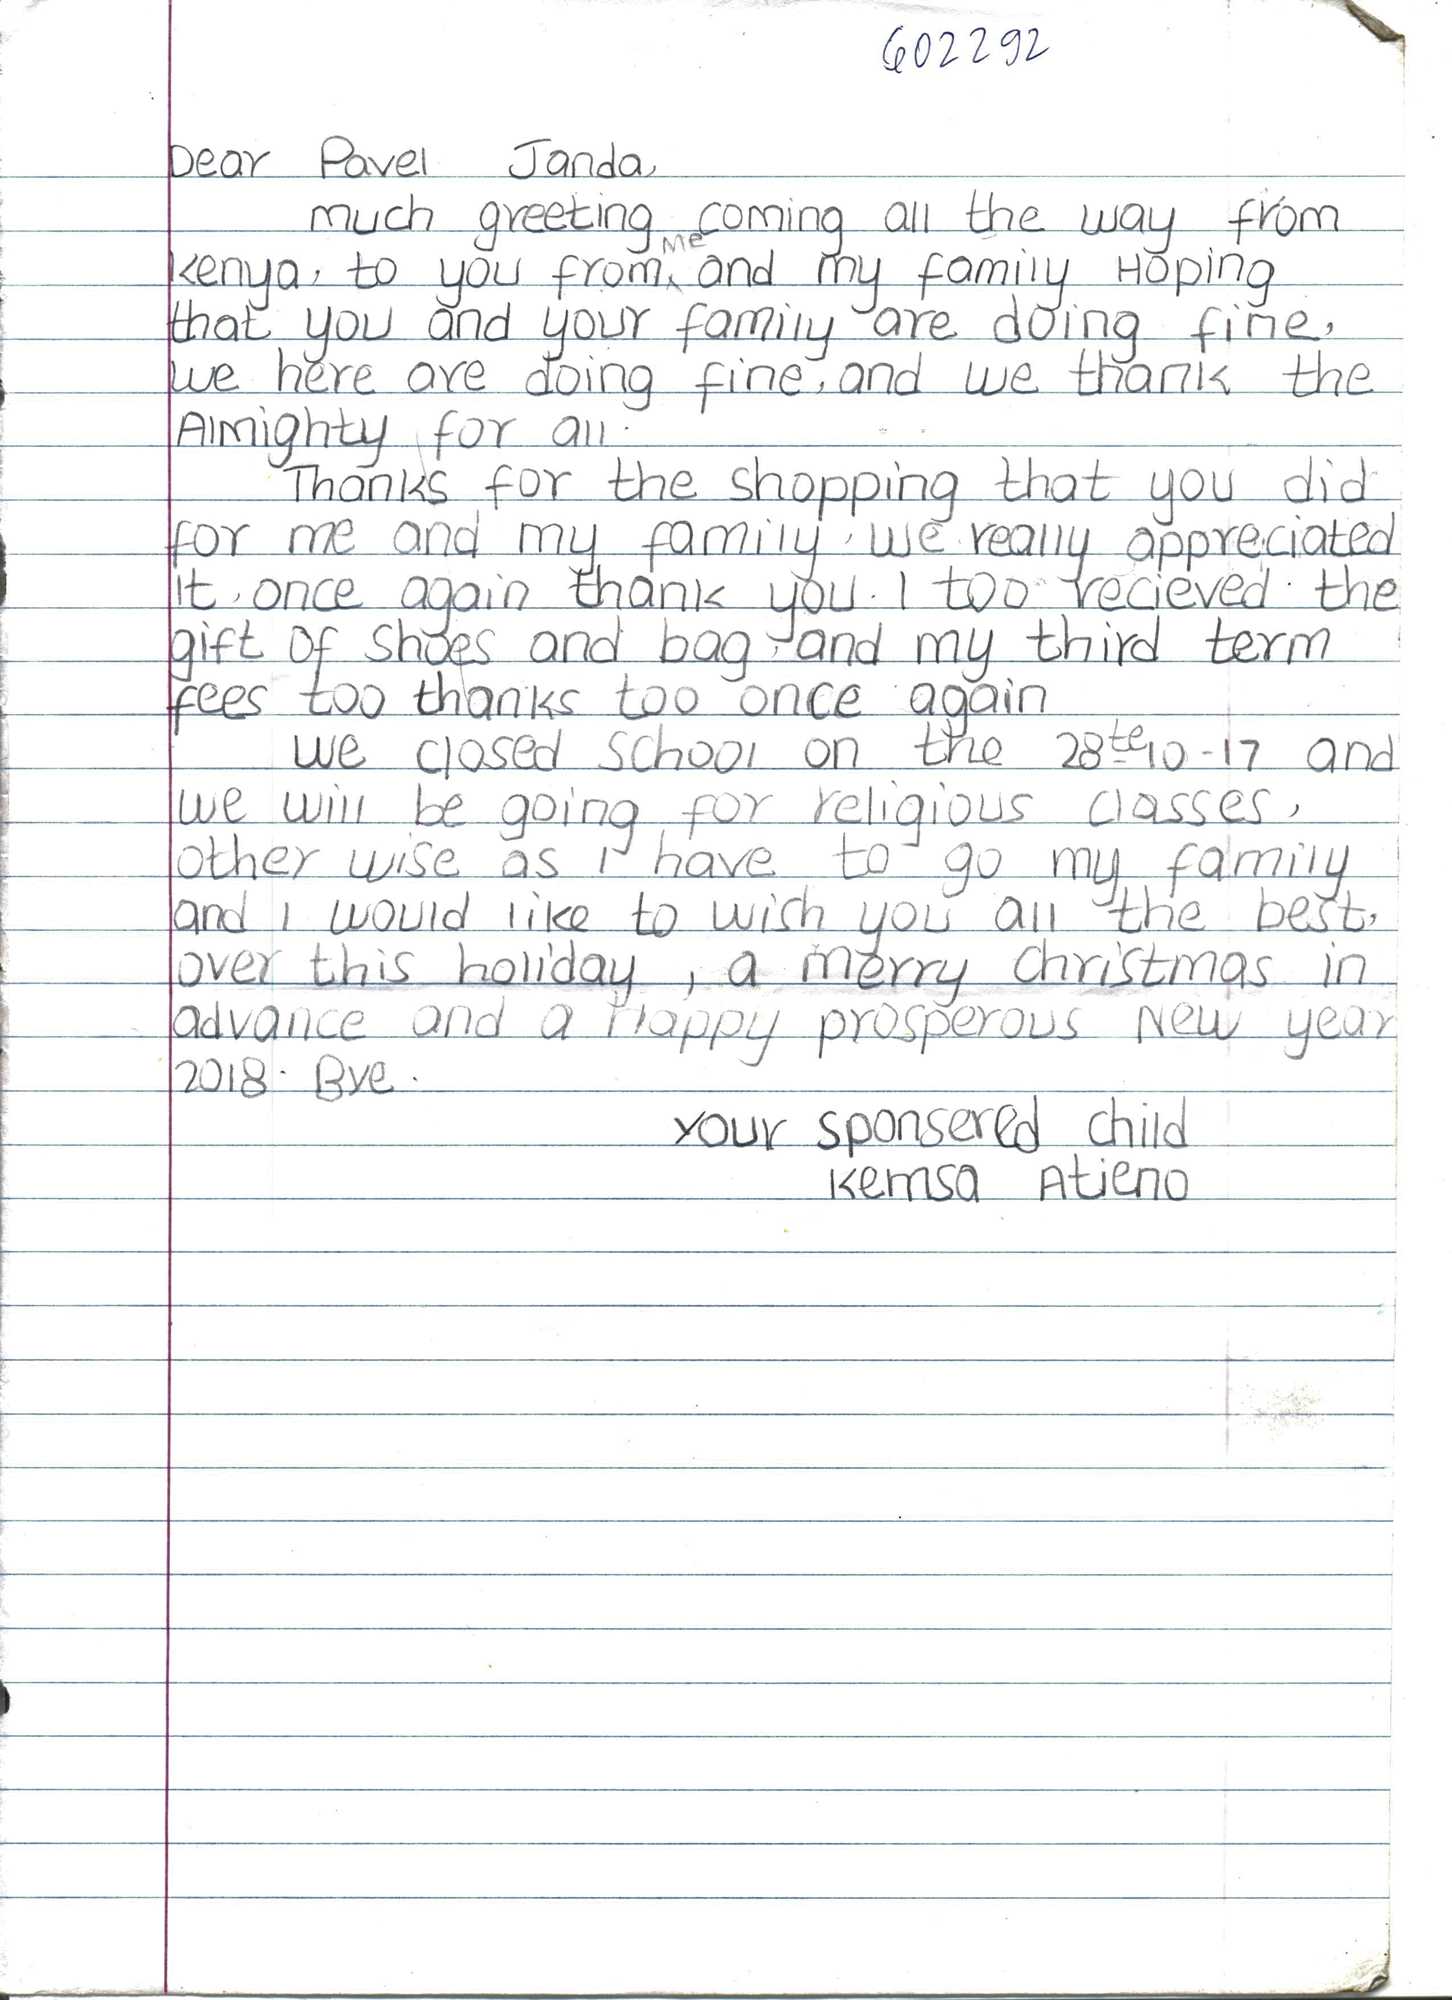 602292
Dear Pavel Janda,
much greeting coming all the way from
Kenya, to you from me and my family Hoping
that you and your family are doing fine,
we here are doing fine, and we thank the
Almighty for all.
Thanks for the shopping that you did
for me and my family, we really appreciated
it, once again thank you. I too recieved the
gift of shoes and bag, and my third term
fees too thanks too once again
We closed school on the 28te 10-17 and
we will be going for religious classes,
other wise as I have to go my family
and I would like to wish you all the best,
over this holiday, a merry christmas in
advance and a Happy prosperous New year
2018. Bye.
Your sponsered child
Kemsa Atieno